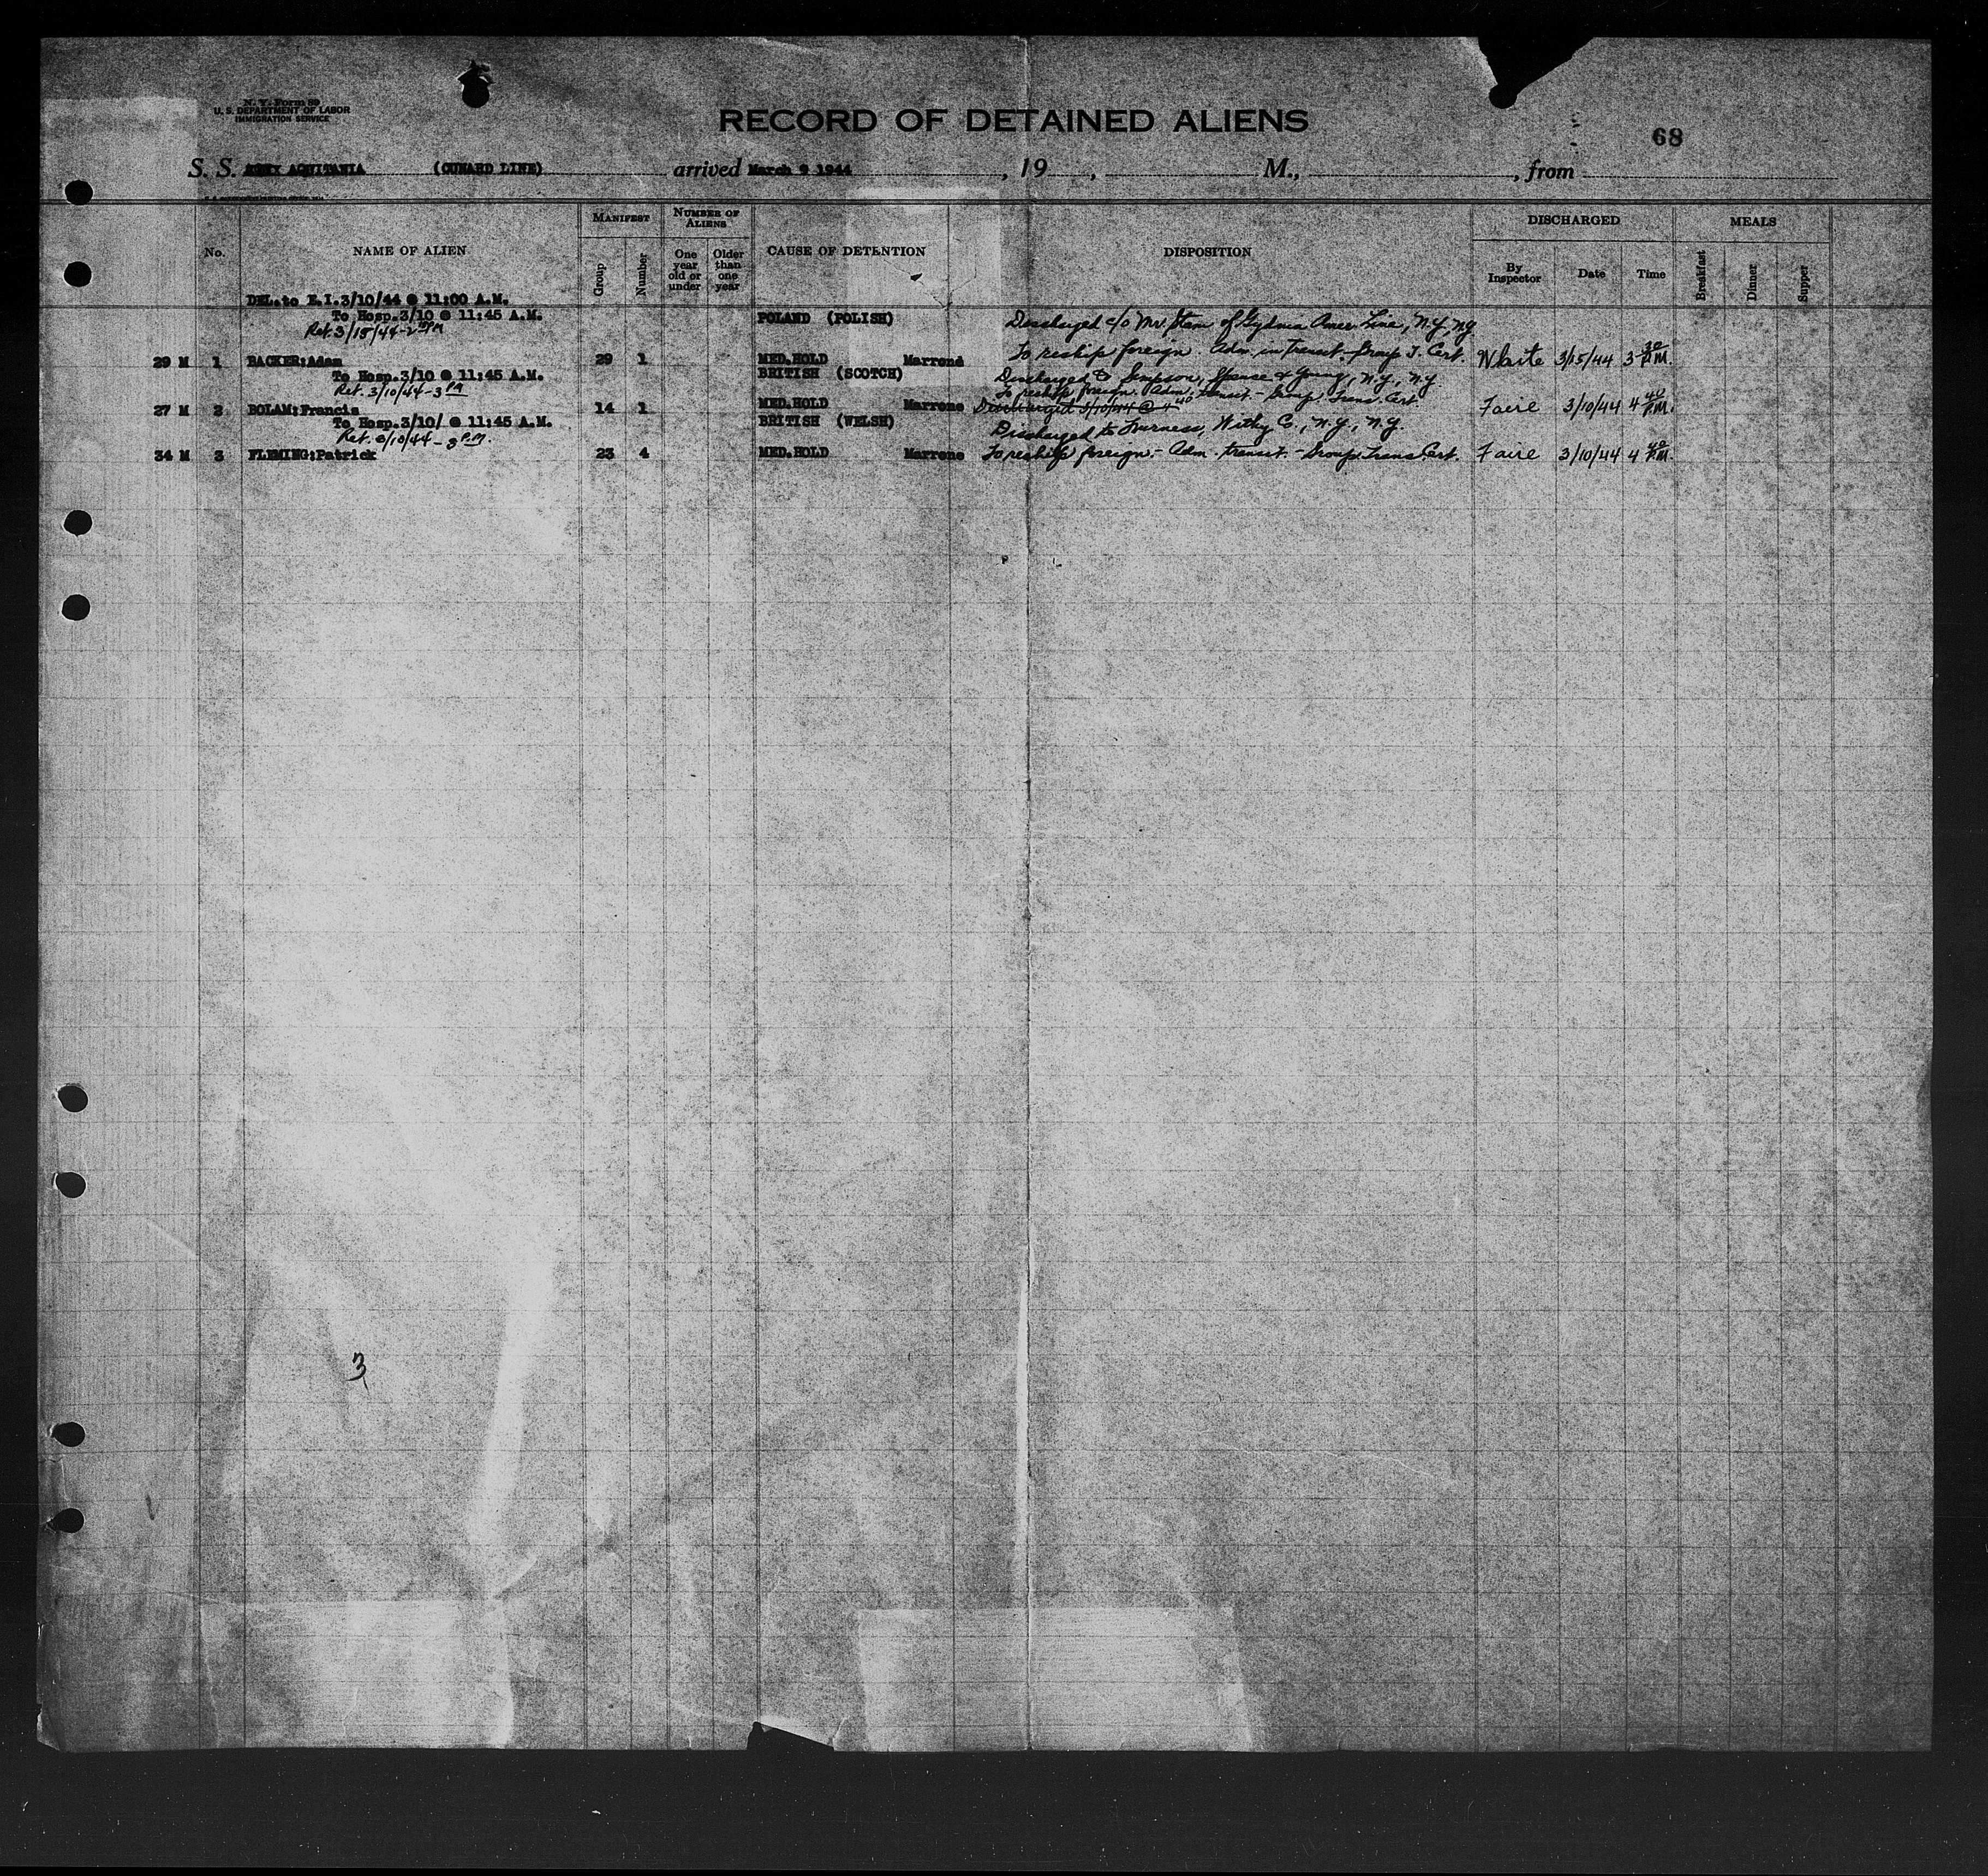 N. Y. Form 89
U. S. DEPARTMENT OF LABOR
IMMIGRATION SERVICE
RECORD OF DETAINED ALIENS
68
S. S. AQUITANIA (CUNARD LINE) arrived March 9 1944, 19, M., from
No.
NAME OF ALIEN
MANIFEST
Group
Number
NUMBER OF ALIENS
One year old or under
Older than one year
CAUSE OF DETENTION
DISPOSITION
DISCHARGED
By Inspector
Date
Time
MEALS
Breakfast
Dinner
Supper
DEL. to E.I. 3/10/44 @ 11:00 A.M.
To Hosp. 3/10 @ 11:45 A.M. POLAND (POLISH) Discharged c/o Mr. Stem of Gydnia Amer. Line, N.Y., N.Y.
Ret. 3/15/44 - 2 PM
29 M 1 BACKER: Adam 29 1 MED.HOLD Marrone To reship foreign. Adm. in transit - Group T. Cert. White 3/15/44 3 30 P.M.
To Hosp. 3/10 @ 11:45 A.M. BRITISH (SCOTCH) Discharged to Simpson, Spence & Young, N.Y., N.Y.
Ret. 3/10/44 - 3 PM To reship foreign. Adm. transit - Group Trans. Cert.
27 M 2 BOLAM: Francis 14 1 MED.HOLD Marrone Discharged 3/10/44 @ 4 40 Faire 3/10/44 4 40 P.M.
To Hosp. 3/10/ @ 11:45 A.M. BRITISH (WELSH) Discharged to Furness, Withy Co., N.Y., N.Y.
Ret. 3/10/44 - 3 P.M.
34 M 3 FLEMING: Patrick 23 4 MED.HOLD Marrone To reship foreign - Adm. transit. - Group Trans Cert. Faire 3/10/44 4 40 P.M.
3